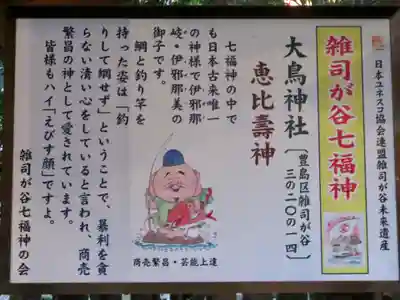 日本ユネスコ協会連盟雑司が谷未来遺産
雑司が谷七福神
大鳥神社
〔豊島区雑司が谷
三の二〇の一四〕
恵比壽神
七福神の中で
も日本古来唯一
の神様で伊邪那
岐・伊邪那美の
御子です。
鯛と釣り竿を
持った姿は「釣
りして網せず」ということで、暴利を貪
らない清い心をしていると言われ、商売
繁昌の神として愛されています。
皆様もハイ「えびす顔」ですよ。
雑司が谷七福神の会
商売繁昌・芸能上達